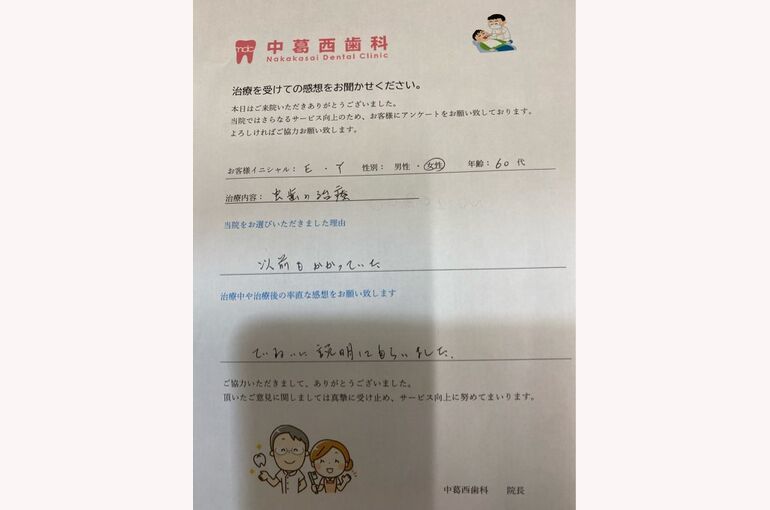 中葛西歯科
Nakakasai Dental Clinic
治療を受けての感想をお聞かせください。
本日はご来院いただきありがとうございました。
当院ではさらなるサービス向上のため、お客様にアンケートをお願い致しております。
よろしければご協力お願い致します。
お客様イニシャル： E ・ Y 性別： 男性 ・ 女性 年齢： 60 代
治療内容： 虫歯の治療
当院をお選びいただきました理由
以前もかかっていた
治療中や治療後の率直な感想をお願い致します
ていねいに説明して もらいました。
ご協力いただきまして、ありがとうございました。
頂いたご意見に関しましては真摯に受け止め、サービス向上に努めてまいります。
中葛西歯科 院長